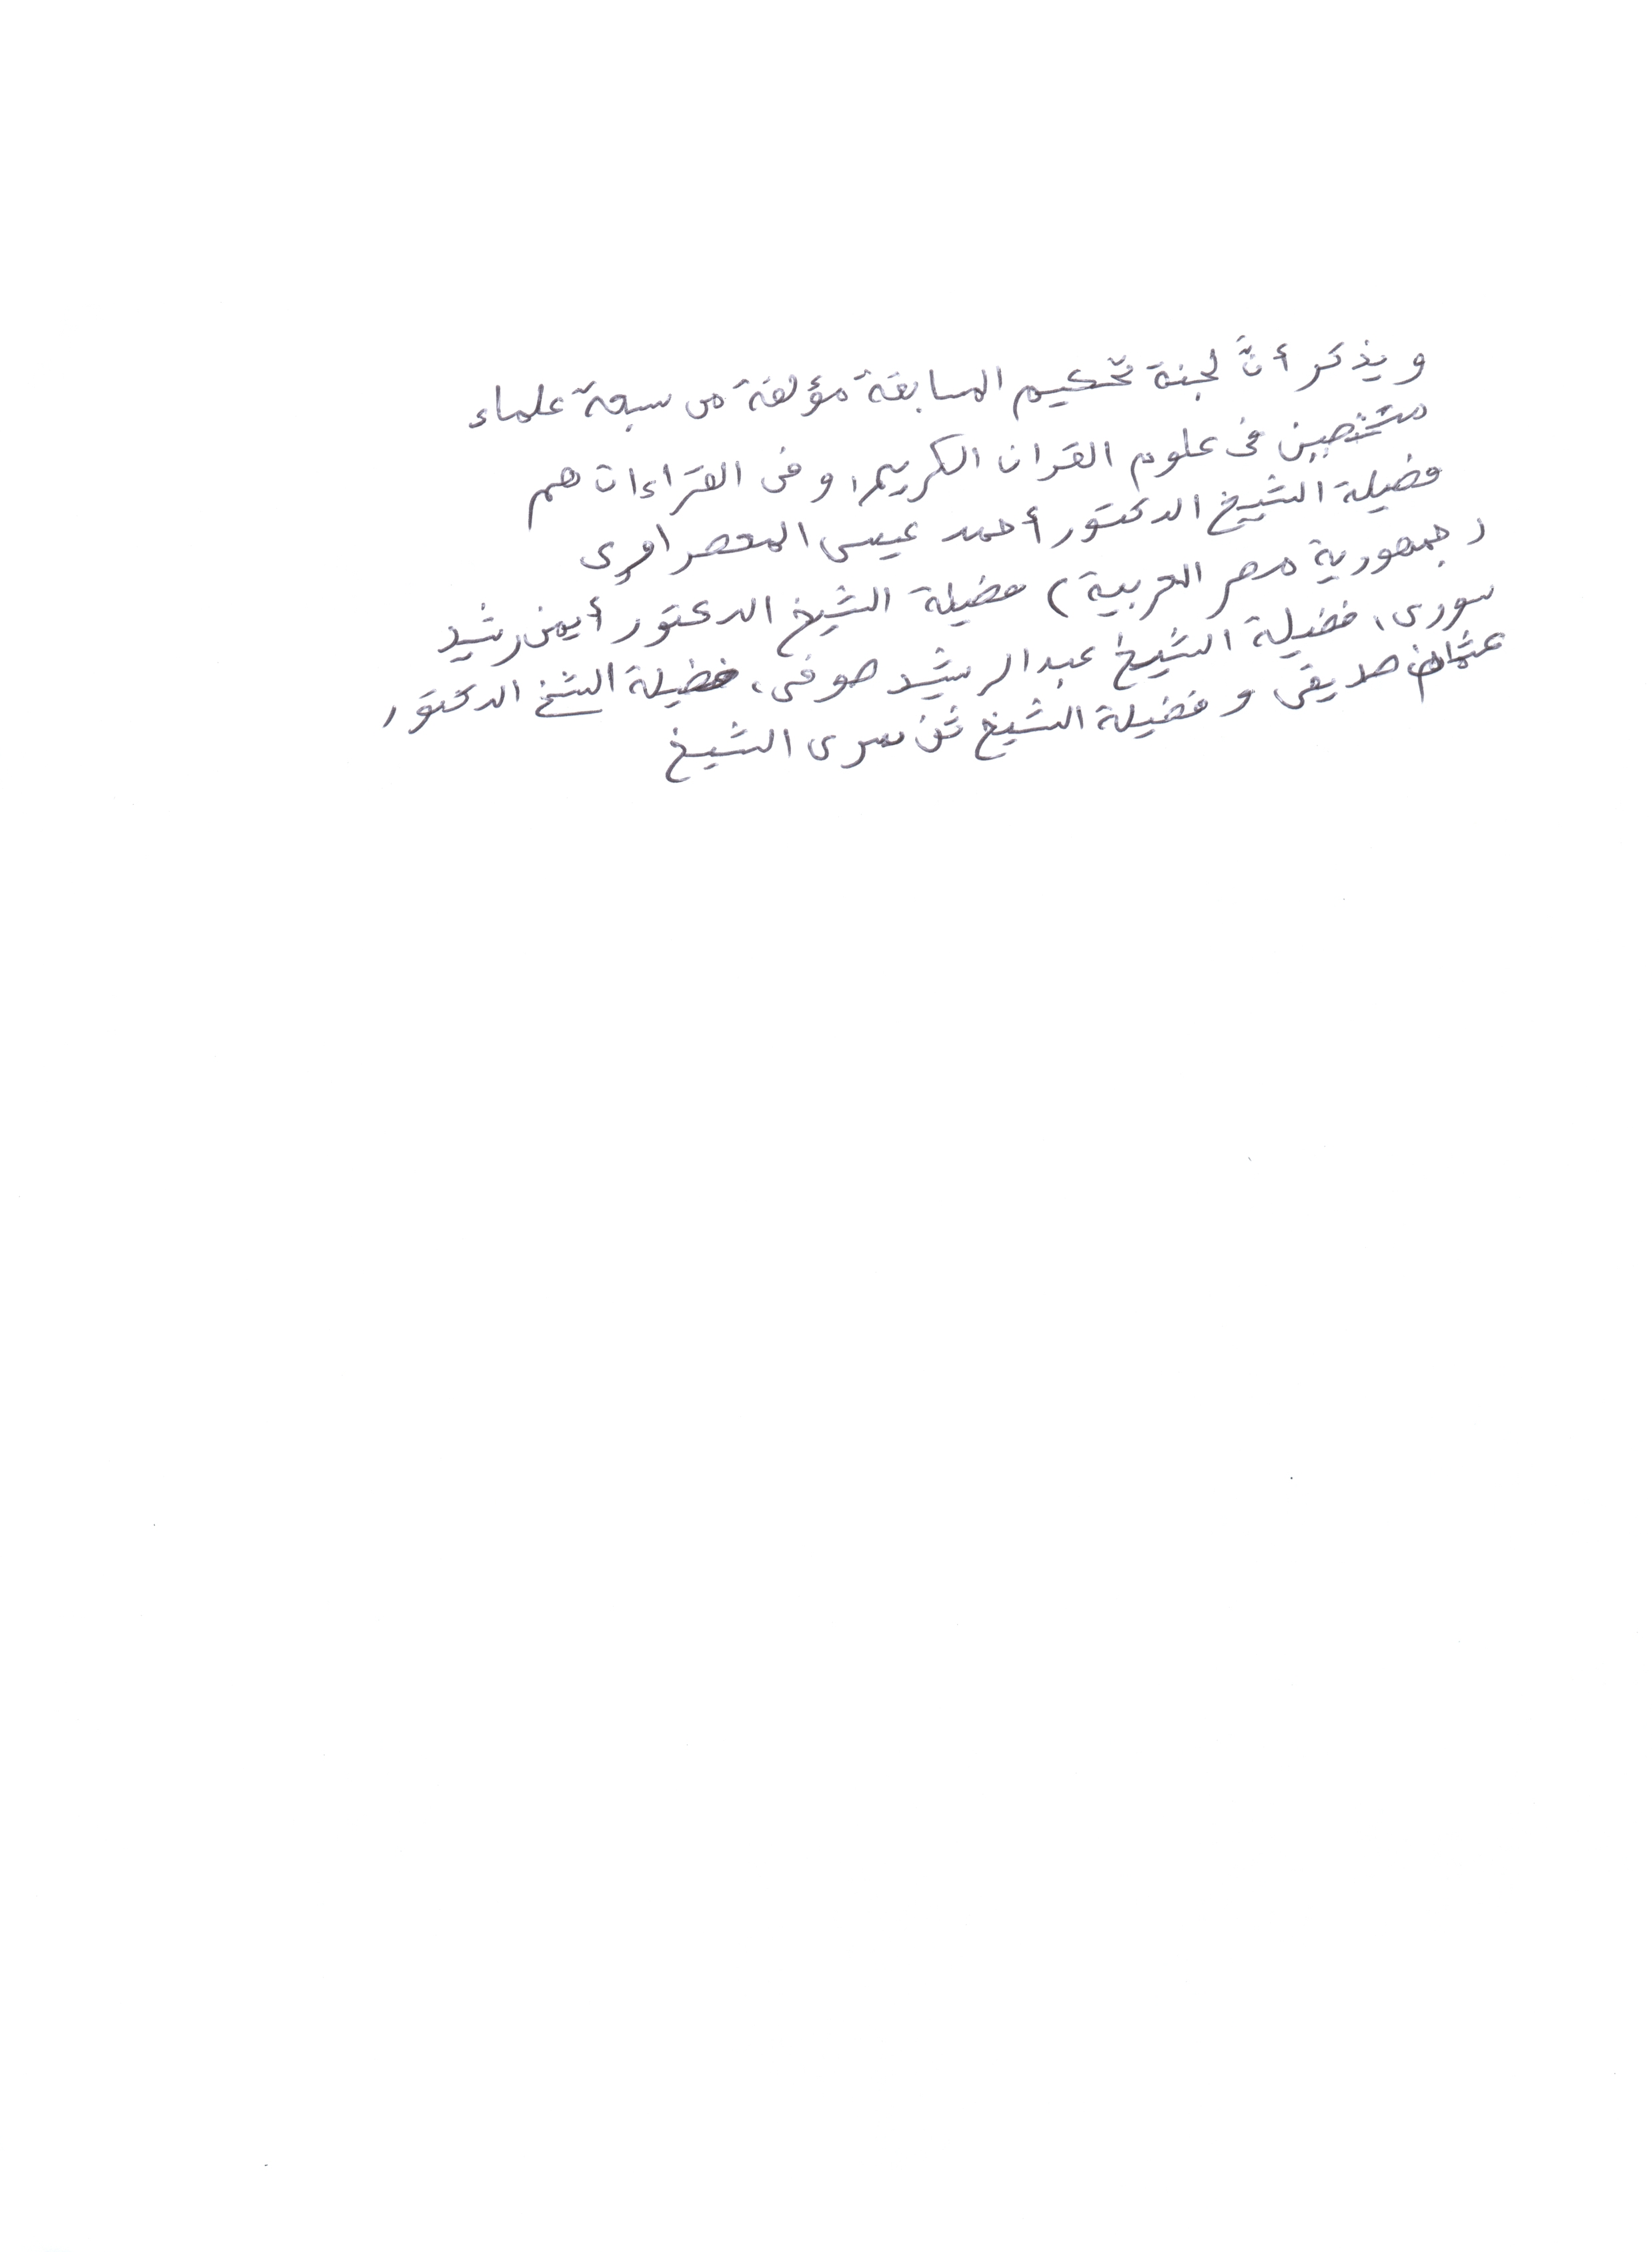 و يذكر أنَّ لجنة تحكيم المسابقة مؤلفة من سبعة علماء
متخصصين فى علوم القران الكريم، و فى القراءات هم
فضيلة الشيخ الدكتور أحمد عيسى المعصراوى
(جمهورية مصر العربية) فضيلة الشيخ الدكتور أيمن رشيد
سورى، فضيلة الشيخ عبد الرشيد صوفى، فضيلة الشيخ الدكتور
عثمان صديقى و فضيلة الشيخ سرى الشيخ